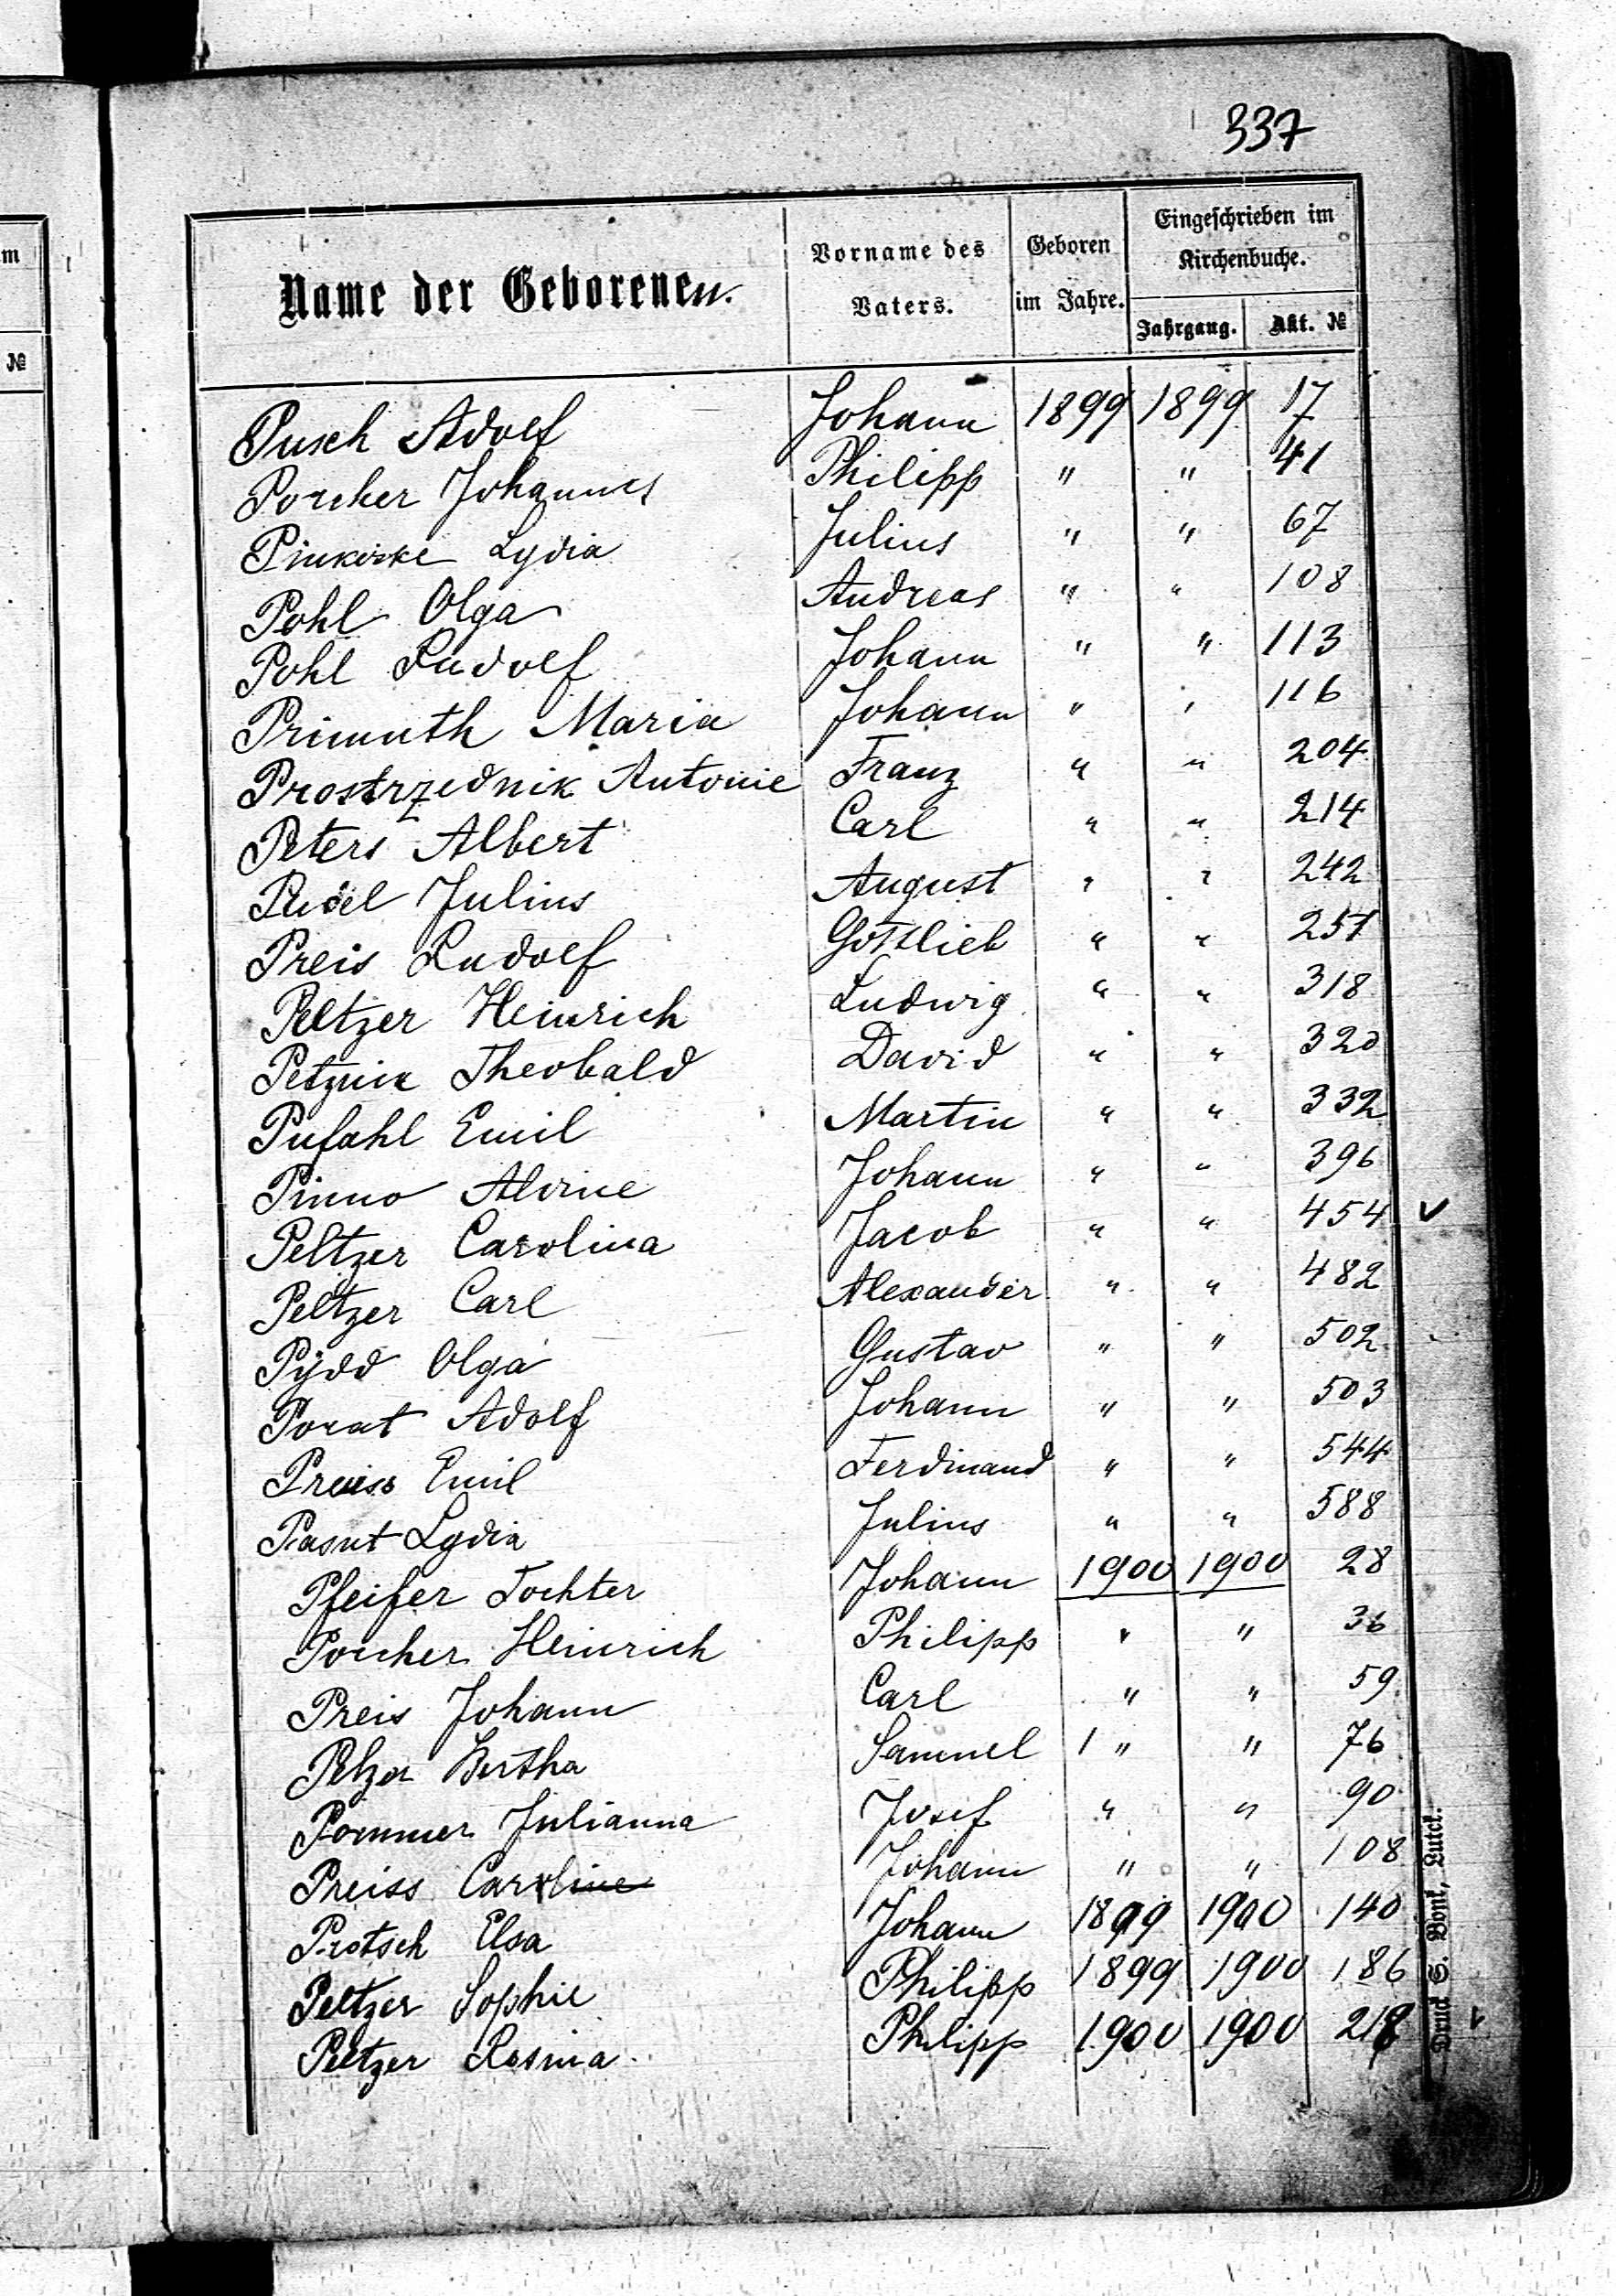 337
Name der Geborenen. Vorname des Vaters. Geboren im Jahre. Eingeschrieben im Kirchenbuche.
Jahrgang. Akt. №
Pusch Adolf Johann 1899 1899 17
Porcher Johannes Philipp " " 41
Pinkoske Lydia Julius " " 67
Pohl Olga Andreas " " 108
Pohl Rudolf Johann " " 113
Primuth Maria Johann " " 116
Prostrzednik Antonie Franz " " 204
Peters Albert Carl " " 214
Pudel Julius August " " 242
Preis Rudolf Gottlieb " " 251
Peltzer Heinrich Ludwig " " 318
Petznik Theobald David " " 320
Pufahl Emil Martin " " 332
Pinno Alvine Johann " " 396
Peltzer Carolina Jacob " " 454 ✓
Peltzer Carl Alexander " " 482
Pydd Olga Gustav " " 502
Porat Adolf Johann " " 503
Preiss Emil Ferdinand " " 544
Pasut Lydia Julius " " 588
Pfeifer Tochter Johann 1900 1900 28
Porcher Heinrich Philipp " " 36
Preis Johann Carl " " 59
Pelzer Bertha Samuel " " 76
Pommer Julianna Josef " " 90
Preiss Caroline Johann " " 108
Protsch Elsa Johann 1899 1900 140
Peltzer Sophie Philipp 1899 1900 186
Peltzer Rosina Philipp 1900 1900 218
Druck S. Bonk, Lutck.
m
№